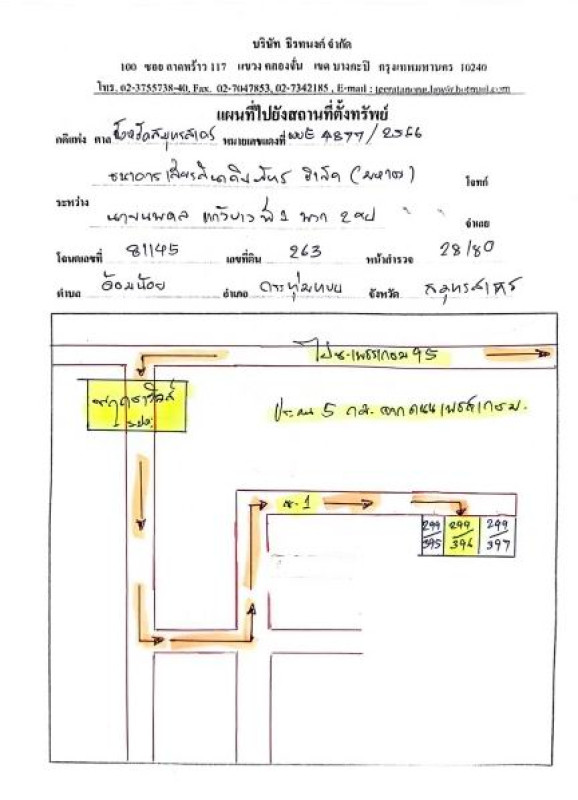 บริษัท ธีรทนงค์ จำกัด
100 ซอย ลาดพร้าว 117 แขวง คลองจั่น เขต บางกะปิ กรุงเทพมหานคร 10240
โทร. 02-3755738-40, Fax. 02-7047853, 02-7342185 , E-mail : teeratanong.law@hotmail.com
แผนที่ไปยังสถานที่ตั้งทรัพย์
คดีแพ่ง ศาล จังหวัดสมุทรสาคร หมายเลขแดงที่ ผบE 4877/2566
ธนาคารเกียรตินาคินภัทร จำกัด (มหาชน) โจทก์
ระหว่าง
ที่ 1 พวก 2 คน จำเลย
โฉนดเลขที่ 81145 เลขที่ดิน 263 หน้าสำรวจ 28/80
ตำบล อ้อมน้อย อำเภอ กระทุ่มแบน จังหวัด สมุทรสาคร
ไปซ.เพชรเกษม 95
ประมาณ 5 กม. จากถนนเพชรเกษม.
ซ.1
299/395 299/396 299/397